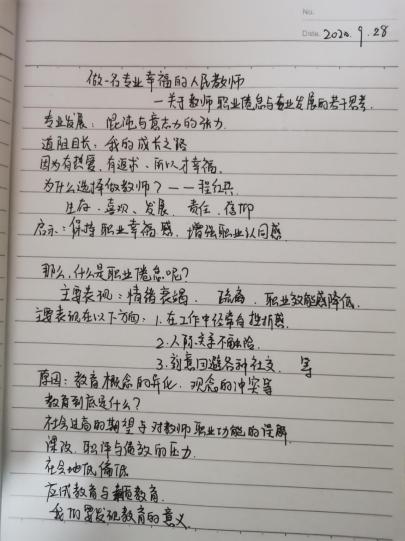 No.
Date. 2020. 9. 28
做一名专业幸福的人民教师
—关于教师职业倦怠与专业发展的若干思考.
专业发展: 混沌与意志力的张力.
道阻且长: 我的成长之路
因为有热爱, 有追求、所以才幸福.
为什么选择做教师? ——程红兵
生存、喜欢、发展、责任、信仰
启示: 保持职业幸福感, 增强职业认同感
那么, 什么是职业倦怠呢?
主要表现: 情绪衰竭、疏离、职业效能感降低.
主要表现在以下方面: 1. 在工作中经常有挫折感.
2. 人际关系不融洽.
3. 刻意回避各种社交. 等
原因: 教育概念的异化, 观念的冲突等
教育到底是什么?
社会过高的期望与对教师职业功能的误解.
课改、职评与绩效的压力.
社会地位偏低
应试教育与素质教育.
我们要发现教育的意义.